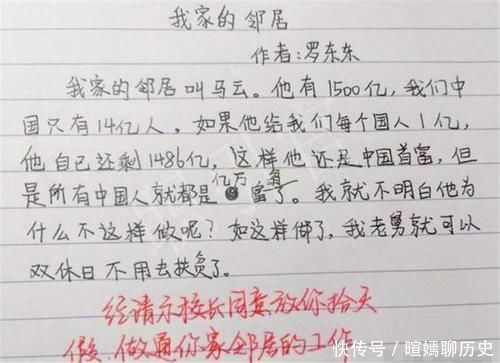 我家的邻居
作者:罗东东
我家的邻居叫马云。他有1500亿,我们中
国只有14亿人,如果他给我们每个国人1亿,
他自己还剩1486亿,这样他还是中国首富,但
是所有中国人就都是亿万富翁了。我就不明白他为
什么不这样做呢?如这样做了,我老舅就可以
双休日不用去扶贫了。
经请示校长同意放你拾天
假,做通你家邻居的工作
快传号/暄嫣聊历史